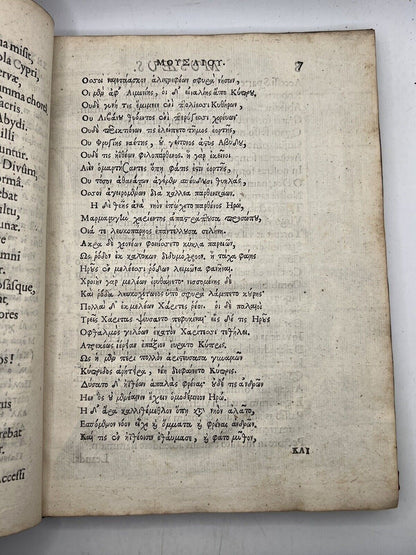 na misit,
ola Cypri,
ervæ
na chore,
acris.
Abydi.
illi
untur.
Divûm,
ormâ.
ebat
ltu,
na.
e
mni
r.
ásque,
ores
s!
cus
rebat
Accessi
ΜΟΥΣΑΙΟΥ.
7
Ὅσσοι ναιετάασκον ἁλιστεφέων σφυρὰ νήσων,
Οἱ μὲν ἀφ' Αἱμονίης, οἱ δ' εἰναλίης ἀπὸ Κύπρου.
Οὐδὲ γυνή τις ἔμιμνεν ἐνὶ πτολίεσσι Κυθήρων.
Οὐ Λιβάνου θυόεντος ἐνὶ πτερύγεσσι χορεύων
Οὐδὲ περικτιόνων τις ἐλείπετο τῆμος ἑορτῆς,
Οὐ Φρυγίης ναέτης, οὐ γείτονος ἀστὸς Ἀβύδου,
Οὐδέ τις ἠϊθέων φιλοπάρθενος. ἦ γὰρ ἐκεῖνοι
Αἰὲν ὁμαρτήσαντες ὅπη φάτις ἐστὶν ἑορτῆς,
Οὐ τόσον ἀθανάτων ἀγέμεν σπεύδουσι θυηλὰς,
Ὅσσον ἀγειρομένων διὰ κάλλεα παρθενικάων.
Ἡ δὲ θεῆς ἀνὰ νηὸν ἐπῴχετο παρθένος Ἡρὼ,
Μαρμαρυγὴν χαρίεντος ἀπαστράπτουσα προσώπου,
Οἷά τε λευκοπάρῃος ἐπαντέλλουσα σελήνη.
Ἄκρα δὲ χιονέων φοινίσσετο κύκλα παρειῶν
Ὡς ῥόδον ἐκ καλύκων διδυμόχροον. ἦ τάχα φαίης
Ἡροῦς ἐν μελέεσσι ῥόδων λειμῶνα φανῆναι.
Χροιὴν γὰρ μελέων ἐρυθαίνετο· νισσομένης δὲ
Καὶ ῥόδα λευκοχίτωνος ὑπὸ σφυρὰ λάμπετο κούρης.
Πολλαὶ δ' ἐκ μελέων Χάριτες ῥέον. οἱ δὲ παλαιοὶ
Τρεῖς Χάριτας ψεύσαντο πεφυκέναι· εἷς δέ τις Ἡροῦς
Ὀφθαλμὸς γελόων ἑκατὸν Χαρίτεσσι τεθήλει.
Ἀτρεκέως ἱέρειαν ἐπάξιον εὕρατο Κύπρις.
Ὣς ἡ μὲν περὶ πολλὸν ἀριστεύουσα γυναικῶν
Κύπριδος ἀρήτειρα, νέη διεφαίνετο Κύπρις.
Δύσατο δ' ἠϊθέων ἁπαλὰς φρένας· οὐδέ τις ἀνδρῶν
Ἦεν ὃς οὐ μενέαινεν ἔχειν ὁμοδέμνιον Ἡρώ.
Ἡ δ' ἄρα καλλιθέμεθλον ὅπη κατὰ νηὸν ἀλᾶτο,
Ἑσπόμενον νόον εἶχε καὶ ὄμματα καὶ φρένας ἀνδρῶν.
Καί τις ἐν ἠϊθέοισιν ἐθαύμασε, καὶ φάτο μῦθον,
ΚΑΙ